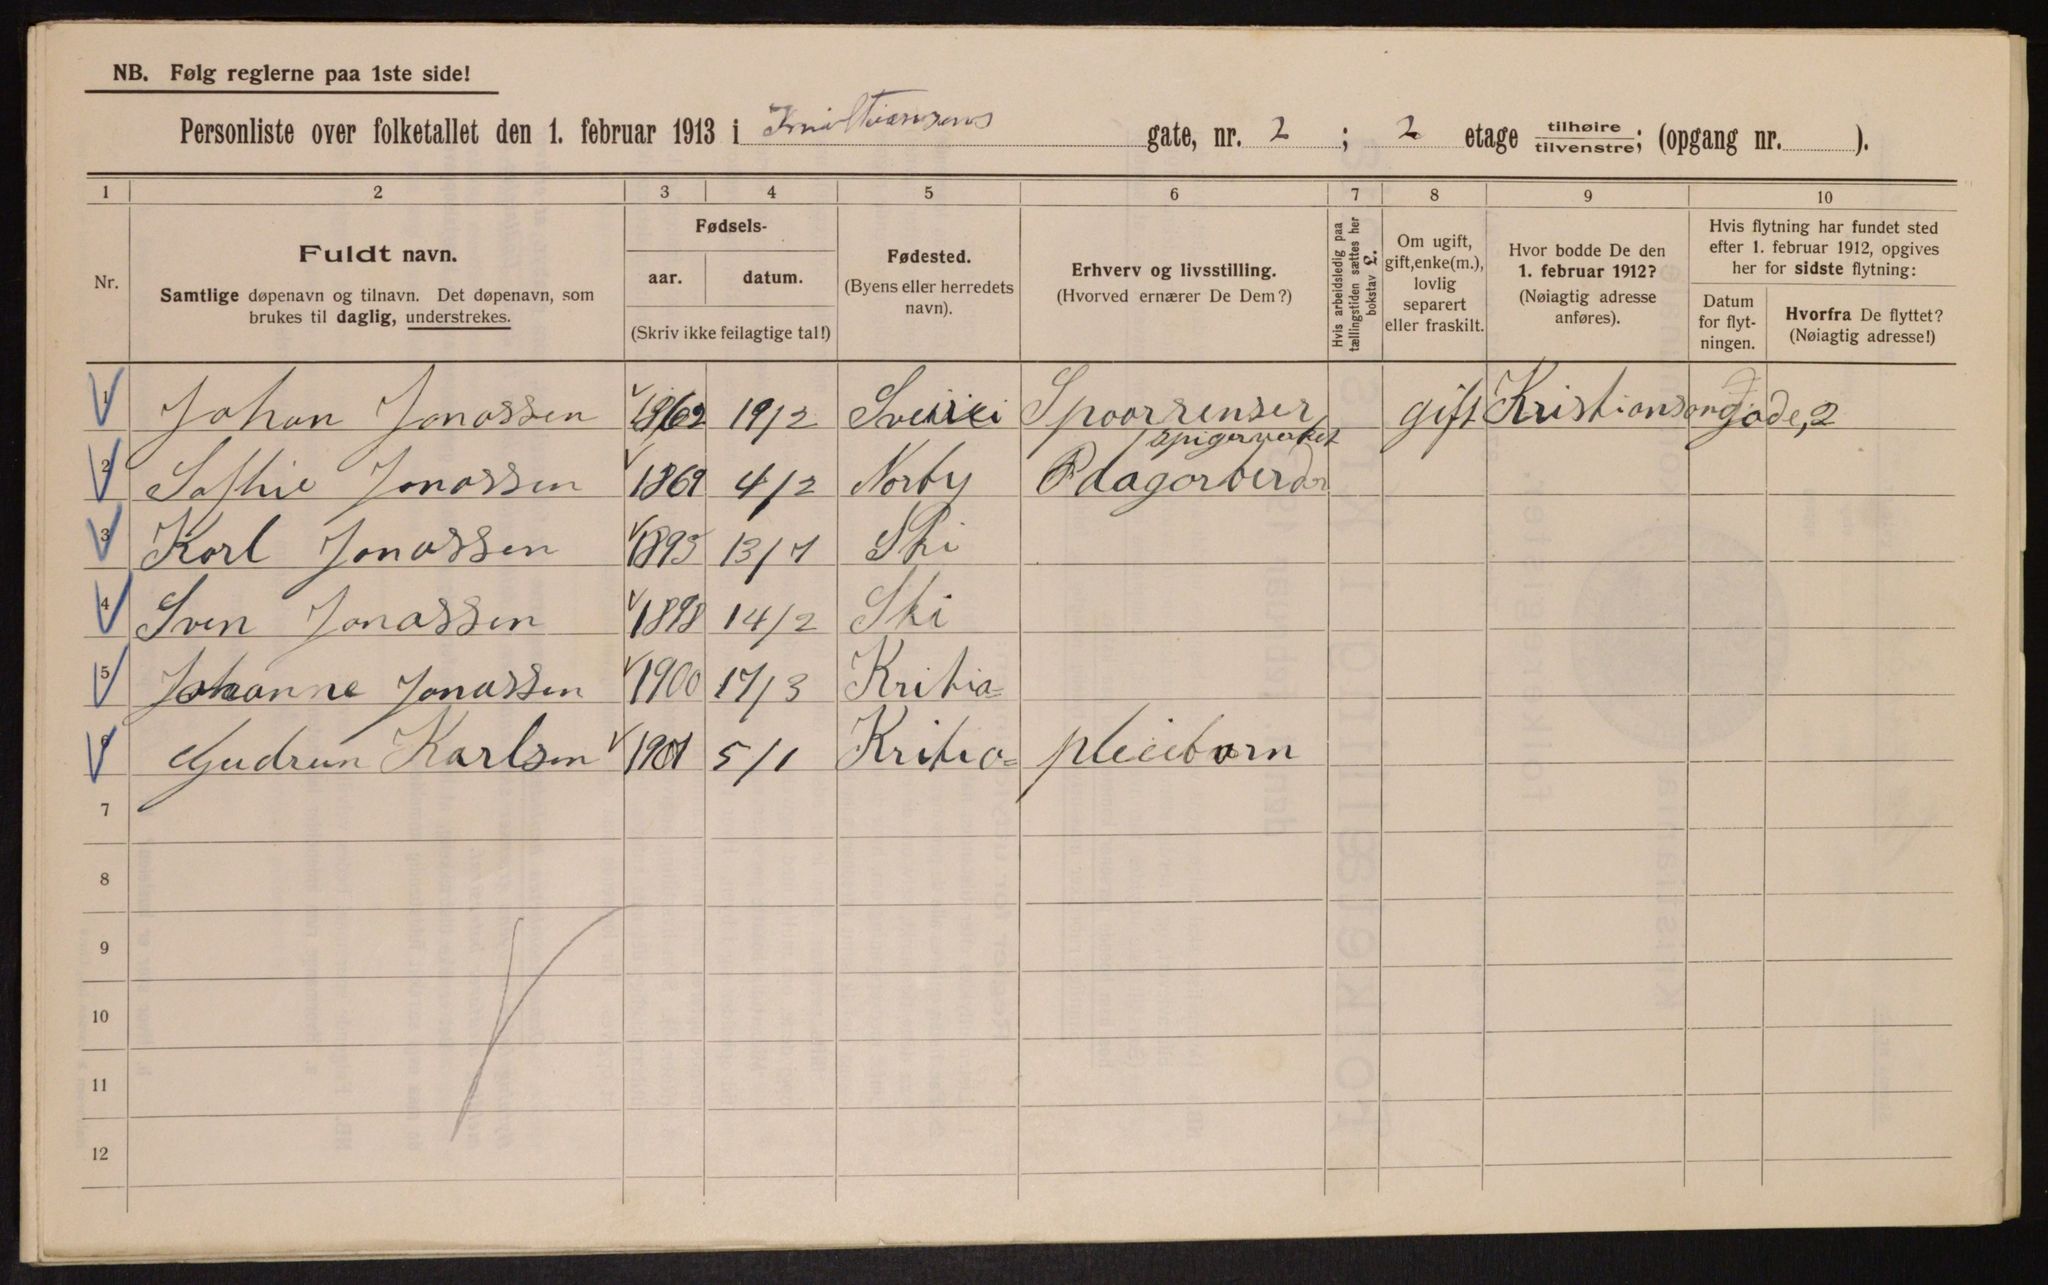 NB. Følg reglerne paa 1ste side!
Personliste over folketallet den 1. februar 1913 i Kristiansens gate, nr. 2 ; 2 etage tilhøire / tilvenstre; (opgang nr. ).
1 2 3 4 5 6 7 8 9 10
Nr.
Fuldt navn.
Samtlige døpenavn og tilnavn. Det døpenavn, som
brukes til daglig, understrekes.
Fødsels-
aar. datum.
(Skriv ikke feilagtige tal!)
Fødested.
(Byens eller herredets
navn).
Erhverv og livsstilling.
(Hvorved ernærer De Dem?)
Hvis arbeidsledig paa
tællingstiden sættes her
bokstav L.
Om ugift,
gift, enke(m.),
lovlig
separert
eller fraskilt.
Hvor bodde De den
1. februar 1912?
(Nøiagtig adresse
anføres).
Hvis flytning har fundet sted
efter 1. februar 1912, opgives
her for sidste flytning:
Datum
for flyt-
ningen.
Hvorfra De flyttet?
(Nøiagtig adresse!)
1 Johan Jonassen 1862 19/2 Spoorrenser gift Kristiansens Gade, 2
spigerverket
2 Sofhie Jonassen 1869 4/2 Norby
3 Karl Jonassen 1895 13/7 Ski
4 Sven Jonassen 1898 14/2 Ski
5 Johanne Jonassen 1900 17/3 Kritia=
6 Gudrun Karlsen 1901 5/1 Kritia= pleiebarn
7
8
9
10
11
12